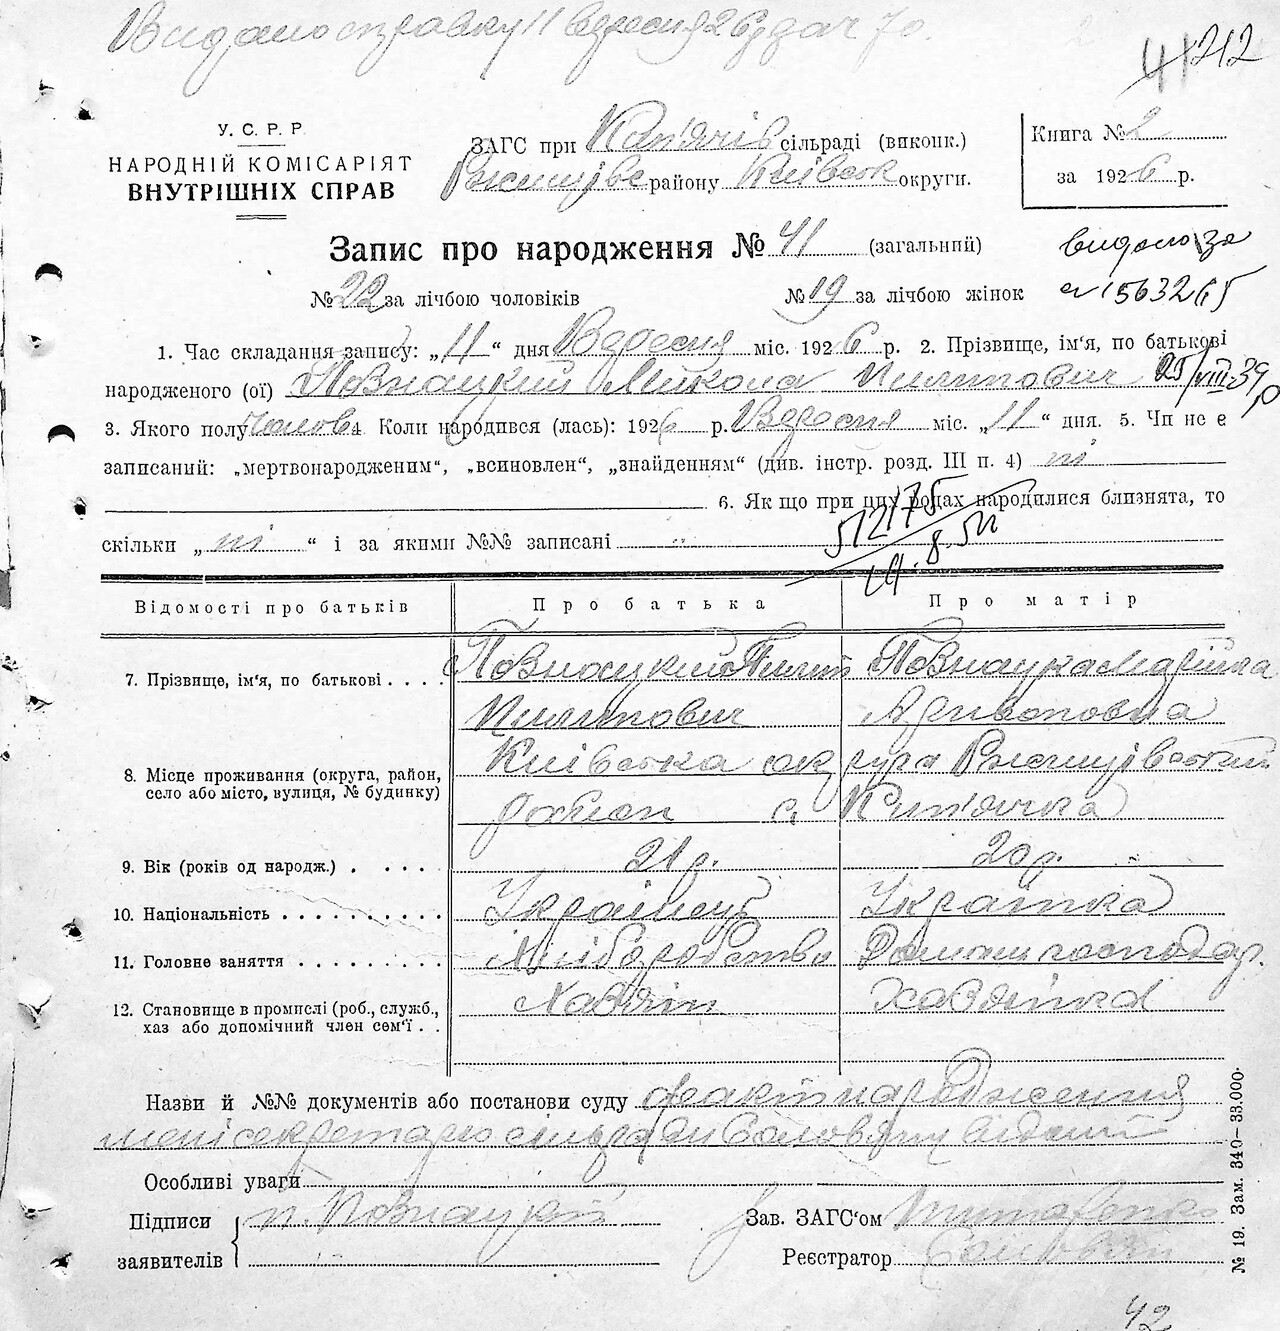 Видано справку 11 вересня 26р
41 212
У. С. Р. Р.
НАРОДНІЙ КОМІСАРІЯТ
ВНУТРІШНІХ СПРАВ
ЗАГС при сільраді (виконк.)
Ржищівс району Київськ округи.
Книга № 2
за 1926 р.
Запис про народження № 41 (загальний)
видано за
№ 22 за лічбою чоловіків № 19 за лічбою жінок
1. Час складання запису: „11“ дня Вересня міс. 1926 р. 2. Прізвище, ім'я, по батькові
народженого (ої) Повнацкий Микола Пилипович 25/VIII-39
3. Якого полу Чолов. 4 Коли народився (лась): 1926 р. Вересня міс. „11“ дня. 5. Чи не є
записаний: „мертвонародженим“, „всиновлен“, „знайденням“ (див. інстр. розд. III п. 4) ні
6. Як що при цих родах народилися близнята, то
скільки „ні“ і за якими №№ записані
512175
19.8.52
Відомості про батьків Про батька Про матір
7. Прізвище, ім'я, по батькові . . . . Повнацкий Пилип Повнацка Марійка
Пилипович
8. Місце проживання (округа, район, Київська округа Ржищівський
село або місто, вулиця, № будинку)
район с.
9. Вік (років од народж.) . . . . . 21 р. 20 р.
10. Національність . . . . . . . . . . Українець Українка
11. Головне заняття . . . . . . . . . Хліборобство Домаш господар.
12. Становище в промислі (роб., служб., Хазяїн Хазяйка
хаз або допомічний член сем'ї . .
Назви й №№ документів або постанови суду факт народження
мені секретарю сільради відомий
Особливі уваги
Підписи заявителів п. Повнацкий
Зав. ЗАГС'ом
Реєстратор
№ 19. Зам. 340—33.000.
42